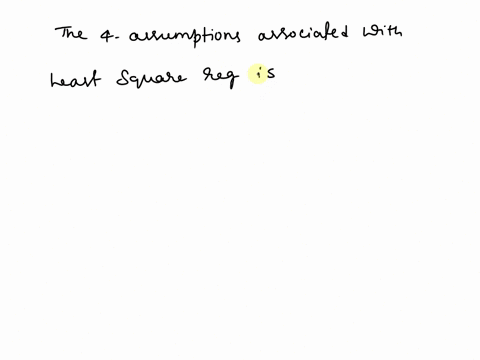 The 4- assumptions associated with
Least Square reg is